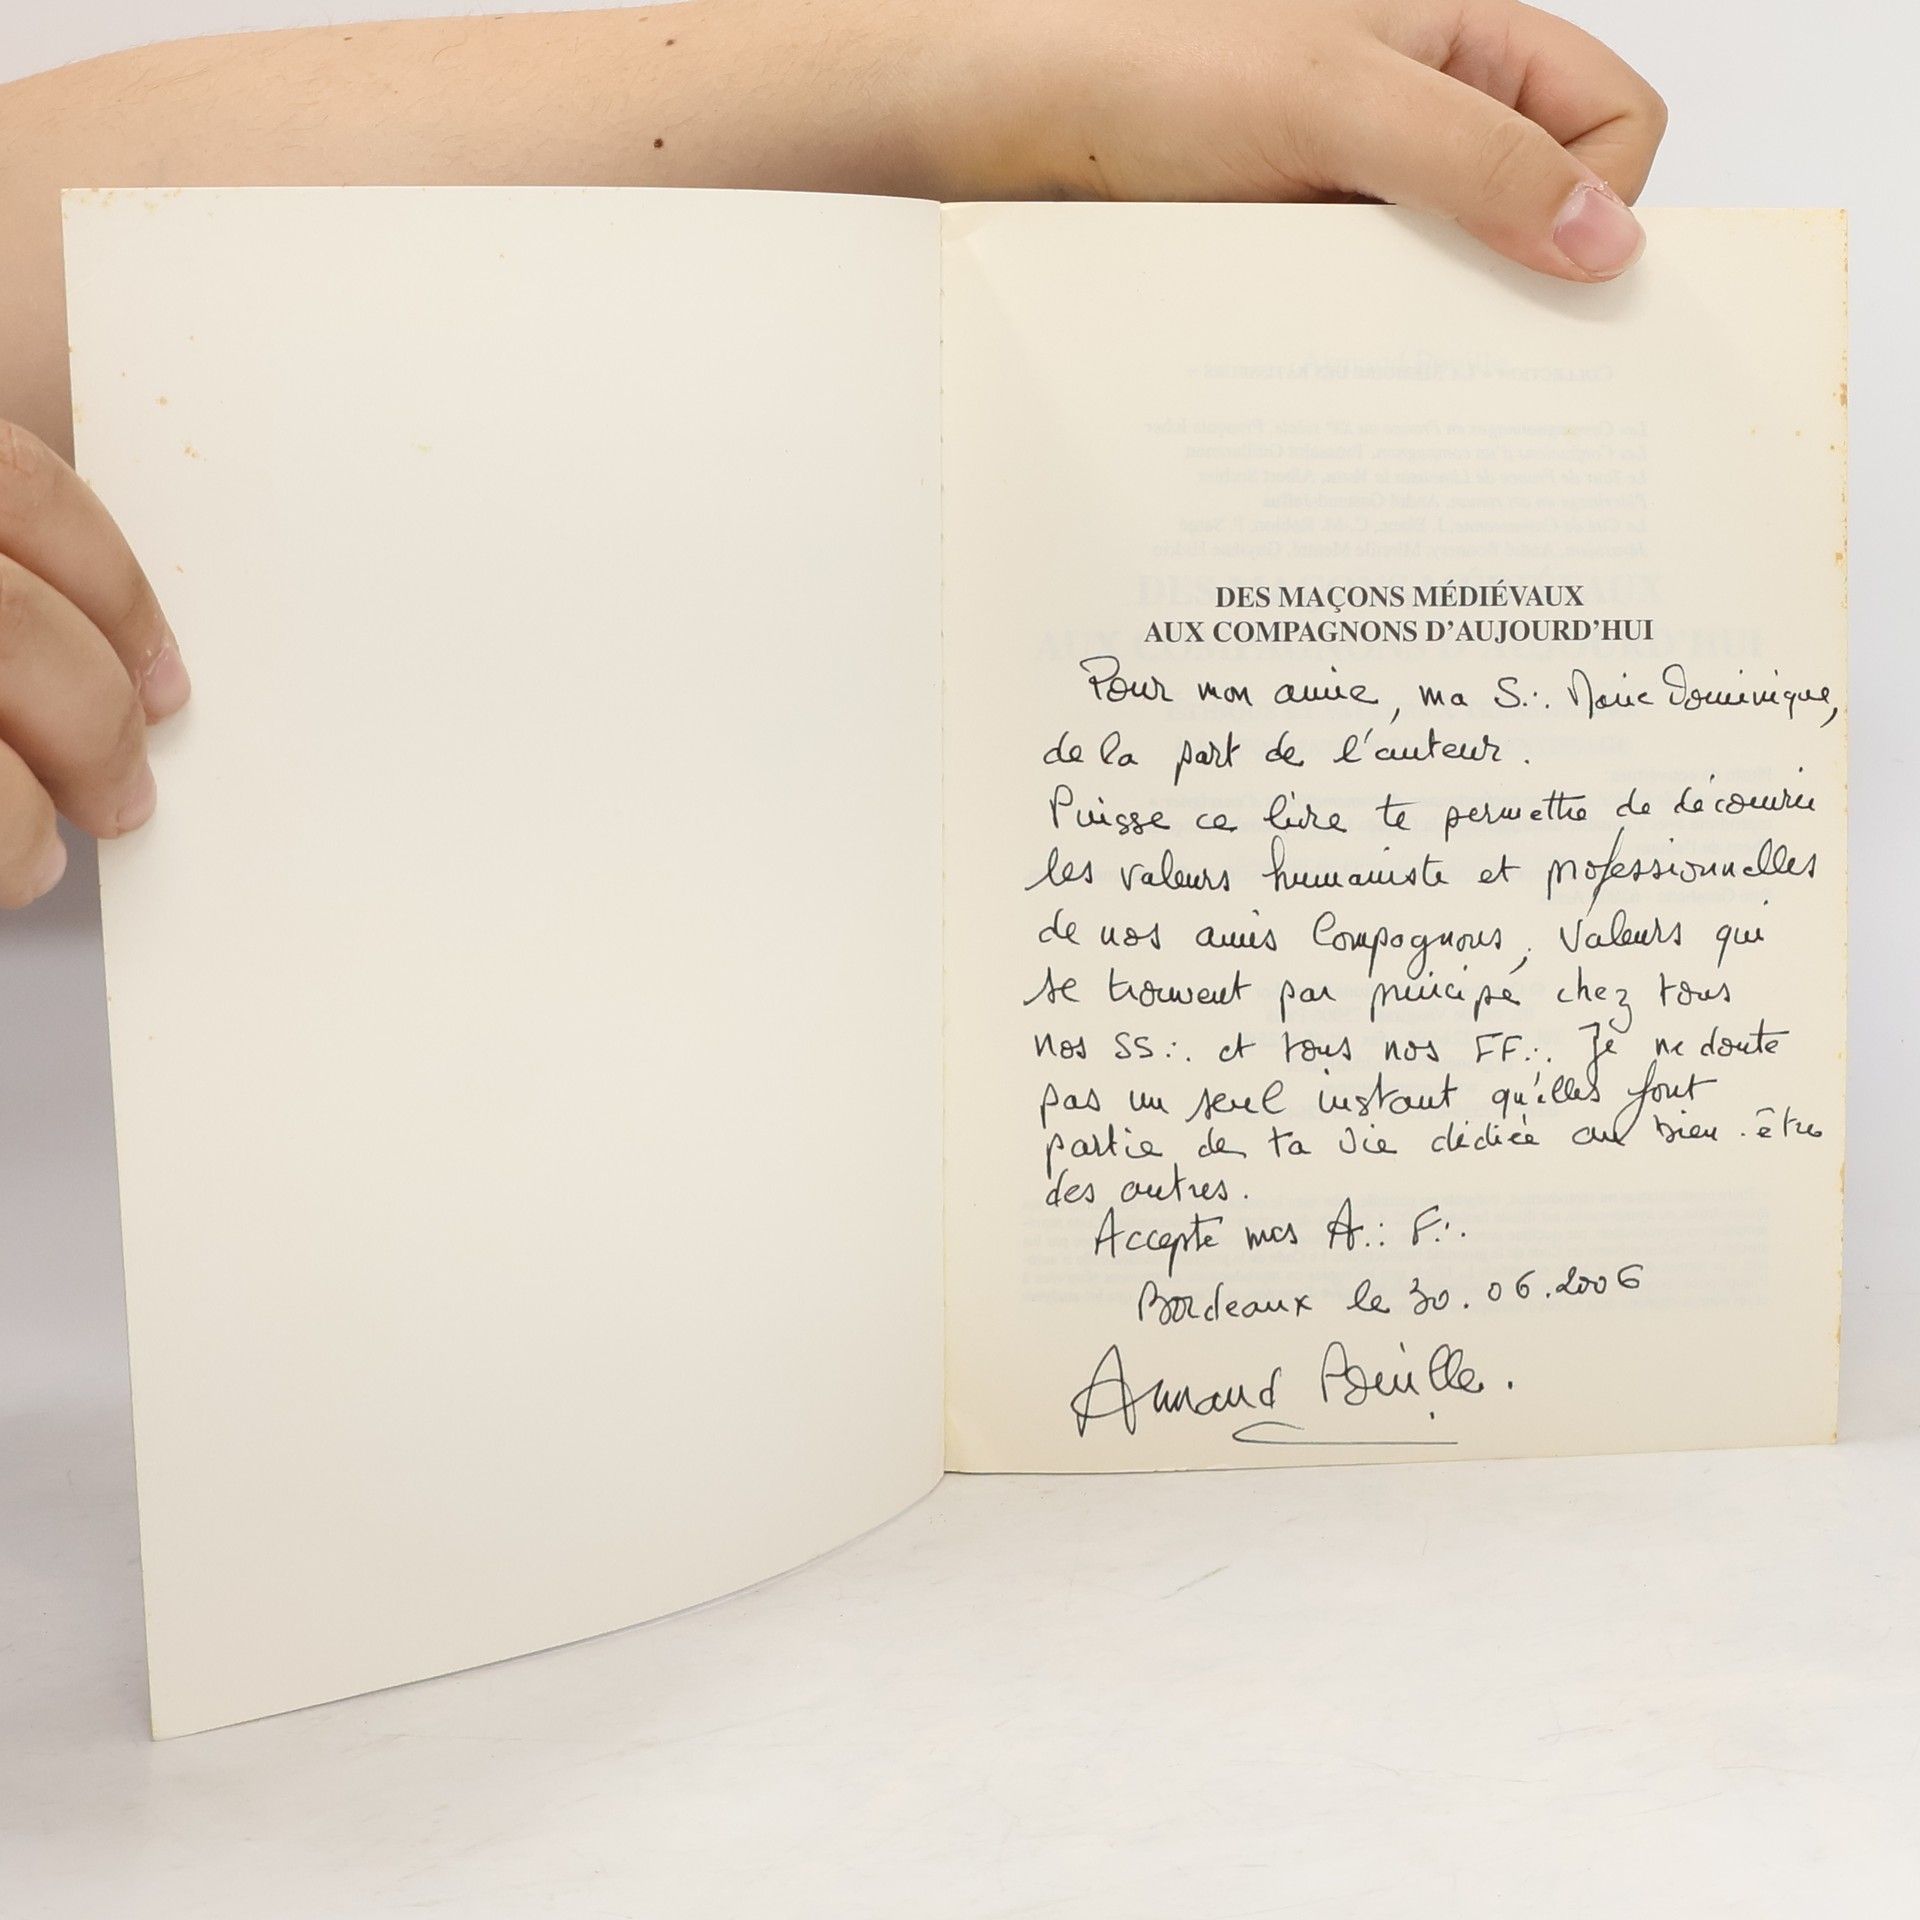 DES MAÇONS MÉDIÉVAUX
AUX COMPAGNONS D'AUJOURD'HUI
Pour mon amie, ma S∴ Marie Dominique,
de la part de l'auteur.
Puisse ce livre te permettre de découvrir
les valeurs humaniste et professionnelles
de nos amis Compagnons, valeurs qui
se trouvent par principe chez tous
nos SS∴ et tous nos FF∴ Je ne doute
pas un seul instant qu'elles font
partie de ta vie dédiée au bien-être
des autres.
Accepte mes A∴ F∴
Bordeaux le 30.06.2006
Armand